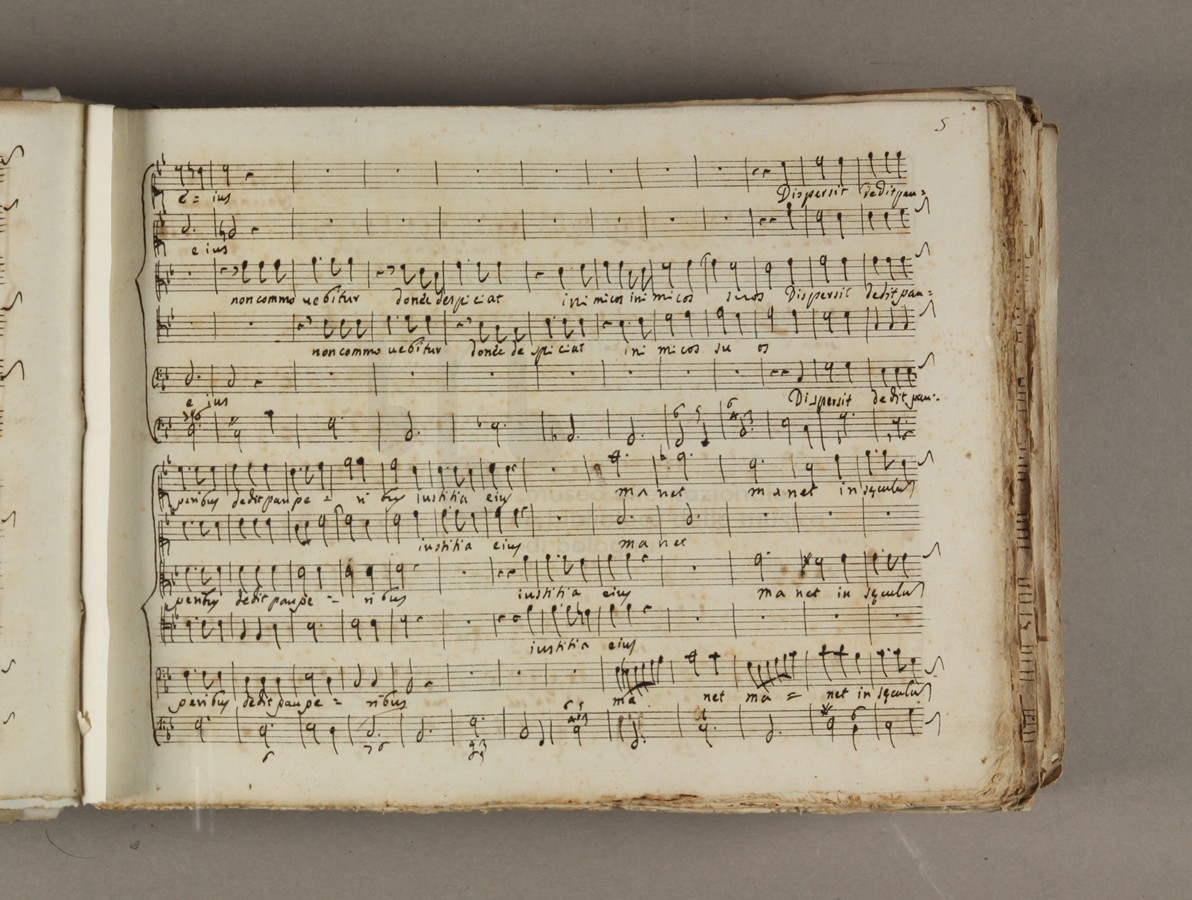 5
e = ius
Dispersit dedit pau =
e ius
non commo uebitur donec despiciat inimicos inimicos suos Dispersit dedit pau =
non commo uebitur donec de spiciat ini micos su os
e ius
Dispersit dedit pau =
peribus dedit paupe = ri bus iustitia eius ma net ma net in sęculum
iustitia eius ma net
peribus dedit paupe = ri bus iustitia eius ma net in sęculum
iustitia eius
peribus dedit paupe = ribus ma net ma = net in sęculum